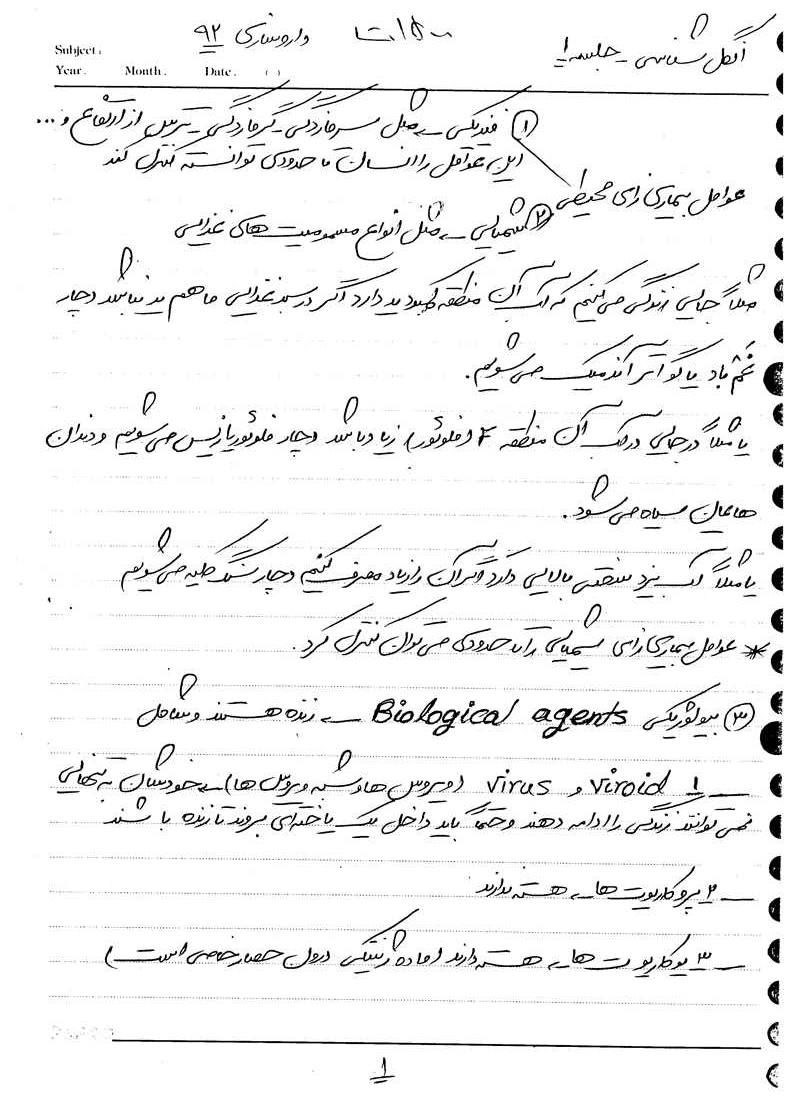 داروسازی ۹۲
انگل شناسی - جلسه ۱
Subject:
Year. Month. Date. ( )
۱) فیزیکی ← مثل سرمازدگی - گرمازدگی - ترس از ارتفاع و ...
این عوامل را انسان تا حدودی توانسته کنترل کند
عوامل بیماری زای محیطی
۲) شیمیایی ← مثل انواع مسمومیت های غذایی
مثلاً جایی زندگی می کنیم که آب آن منطقه کمبود ید دارد اگر در سبد غذایی ما هم ید نباشد دچار
غم باد یا گواتر آندمیک می شویم.
یا مثلاً در جایی در آب آن منطقه F (فلوئور) زیاد باشد دچار فلوئوریازیس می شویم و دندان
هایمان سیاه می شود.
یا مثلاً آب یزد سختی بالایی دارد اگر آن را زیاد مصرف کنیم دچار سنگ کلیه می شویم
* عوامل بیماری زای شیمیایی را تا حدودی می توان کنترل کرد.
۳) بیولوژیکی Biological agents ← زنده هستند و شامل
— ۱ Viroid و Virus (ویروس ها و شبه ویروس ها) ← خودشان به تنهایی
نمی توانند زندگی را ادامه دهند و حتماً باید داخل یک یاخته ای بروند تا زنده باشند
— ۲ پروکاریوت ها ← هسته ندارند
— ۳ یوکاریوت ها ← هسته دارند (ماده ژنتیکی درون حصار خاصی است)
۱